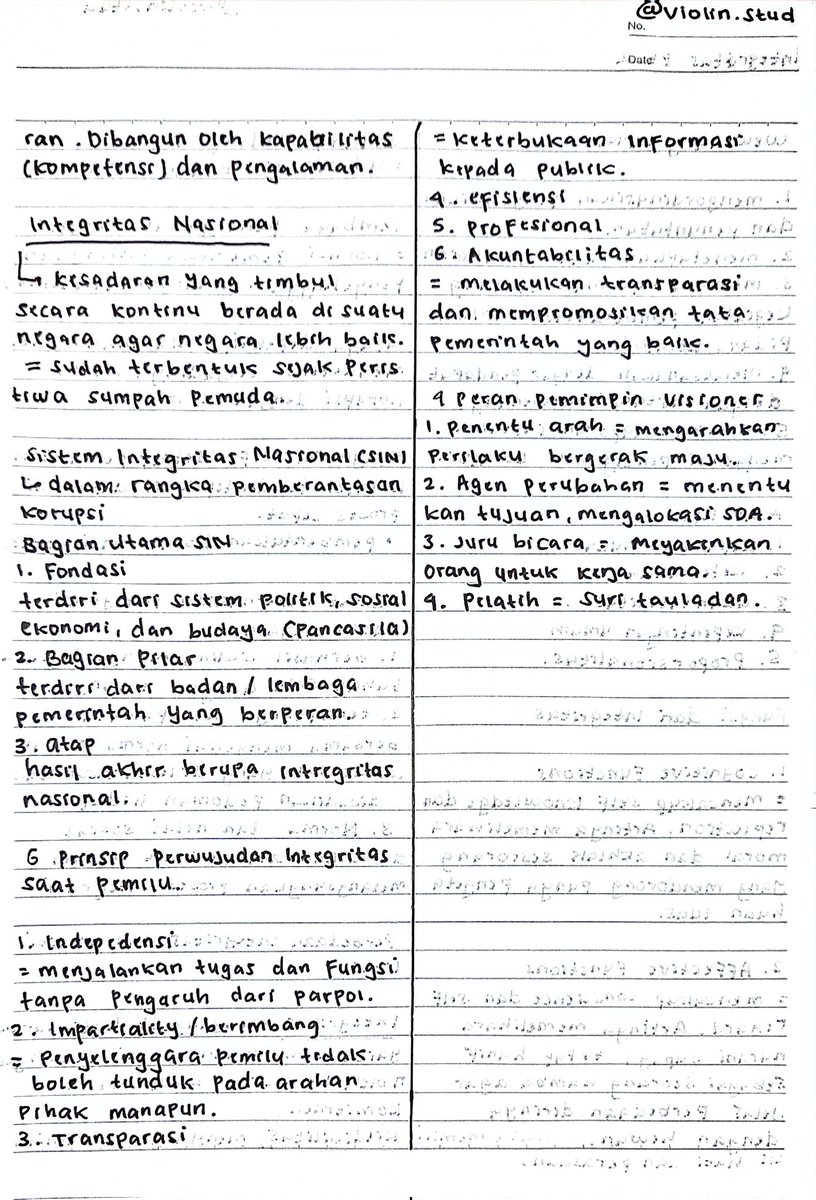 @violin.stud
No.
Date:
ran. Dibangun oleh kapabilitas
(kompetensi) dan pengalaman.
Integritas Nasional
↳ kesadaran yang timbul
secara kontinu berada di suatu
negara agar negara lebih baik.
= sudah terbentuk sejak peris
tiwa sumpah pemuda.
Sistem Integritas Nasional (SIN)
↳ dalam rangka pemberantasan
korupsi
Bagian Utama SIN
1. Fondasi
terdiri dari sistem politik, sosial
ekonomi, dan budaya (Pancasila)
2. Bagian Pilar
terdiri dari badan / lembaga
pemerintah yang berperan
3. atap
hasil akhir berupa intregritas
nasional.
6 prinsip perwujudan Integritas
saat pemilu.
1. Indepedensi
= menjalankan tugas dan Fungsi
tanpa pengaruh dari parpol.
2. Impartiality / berimbang
= Penyelenggara pemilu tidak
boleh tunduk pada arahan
pihak manapun.
3. Transparasi
= Keterbukaan Informasi
kepada publik.
4. efisiensi
5. profesional
6. Akuntabilitas
= melakukan transparasi
dan mempromosikan tata
pemerintah yang baik.
4 peran pemimpin visioner
1. penentu arah = mengarahkan
perilaku bergerak maju.
2. Agen perubahan = menentu
kan tujuan, mengalokasi SDA.
3. Juru bicara = meyakenkan
orang untuk kerja sama.
4. Pelatih = suri tauladan.